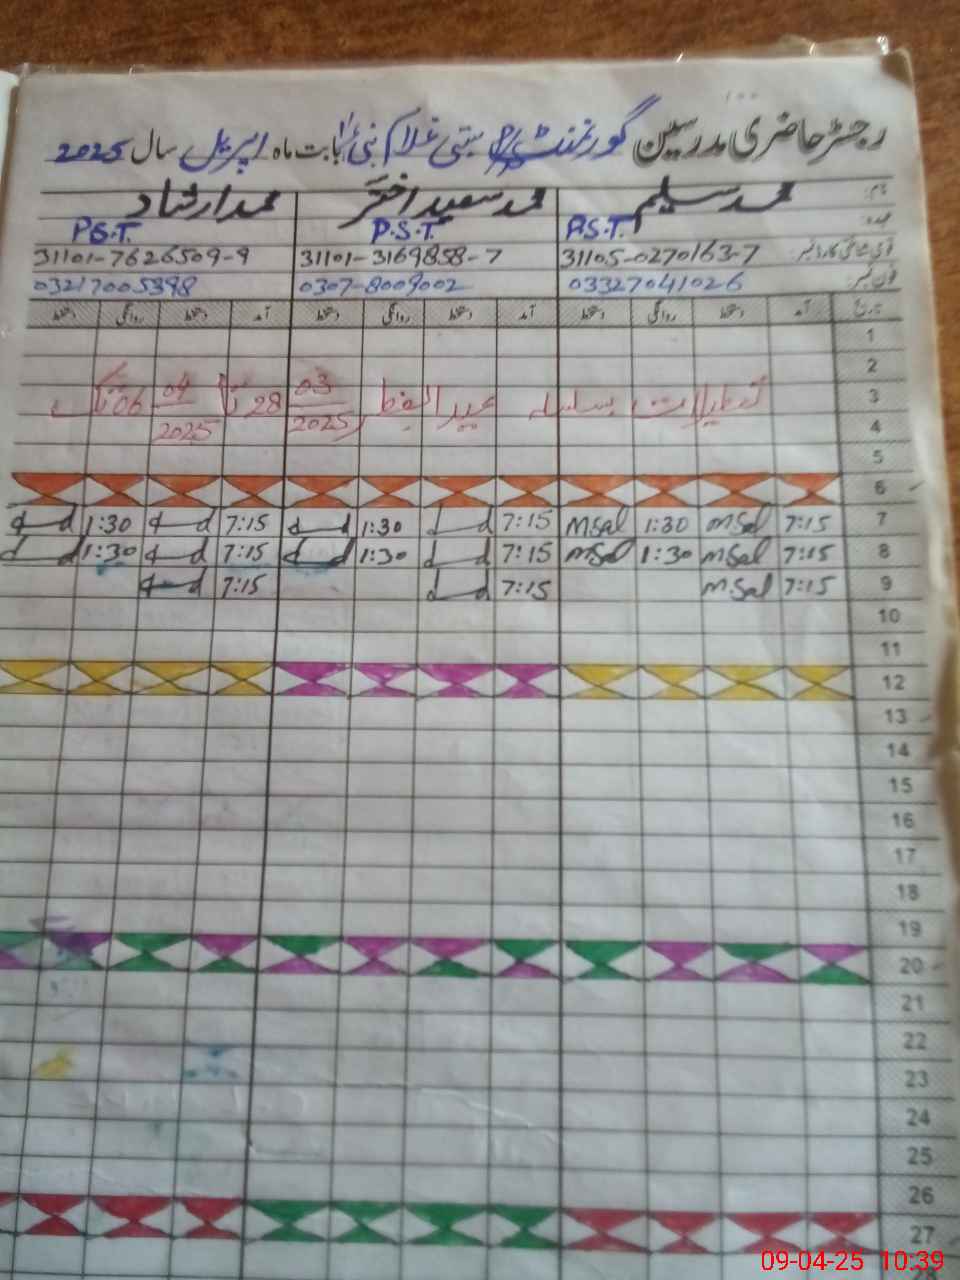 رجسٹر حاضری مدرسین گورنمنٹ بستی غلام نبی بابت ماہ اپریل سال 2025
نام: محمد سلیم محمد سعید اختر محمد ارشاد
عہدہ: P.S.T. P.S.T. P.S.T.
قومی شناختی کارڈ نمبر: 31105-0270163-7 31101-3169858-7 31101-7626509-9
فون نمبر: 03327041026 0307-8009002 03217005398
تاریخ آمد دستخط روانگی دستخط آمد دستخط روانگی دستخط آمد دستخط روانگی دستخط
1
2
3 تعطیلات بسلسلہ عیدالفطر 28 03/2025 تا 06 04/2025 تک
4
5
6
7 7:15 M.Sal 1:30 M.Sal 7:15 1:30 7:15 1:30
8 7:15 M.Sal 1:30 M.Sal 7:15 1:30 7:15 1:30
9 7:15 M.Sal 7:15 7:15
10
11
12
13
14
15
16
17
18
19
20
21
22
23
24
25
26
27
09-04-25 10:39